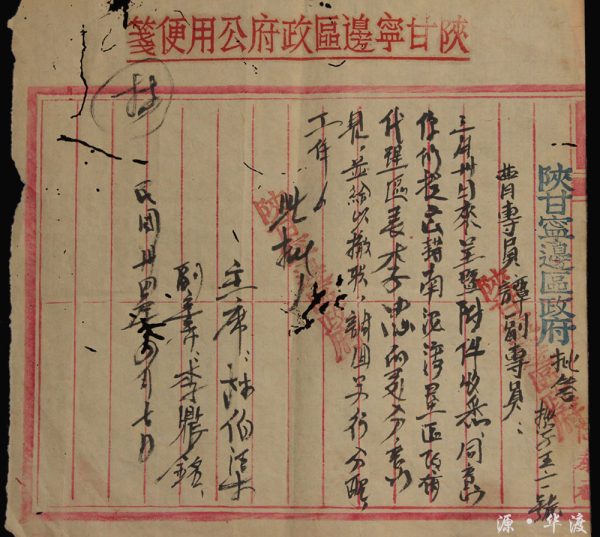 陝甘寧邊區政府公用便箋
陝甘寧邊區政府 批答 批字五一號
曹專員 譚副專員：
三月卅日來呈暨附件收悉。同意
你們提出 南泥灣墾區政府
代理區長李忠心的處分意
見，並給以撤職，調回另行分配
工作。
此批！
主席 林伯渠
副主席 李鼎銘
民國卅四年 月七日
源·华渡